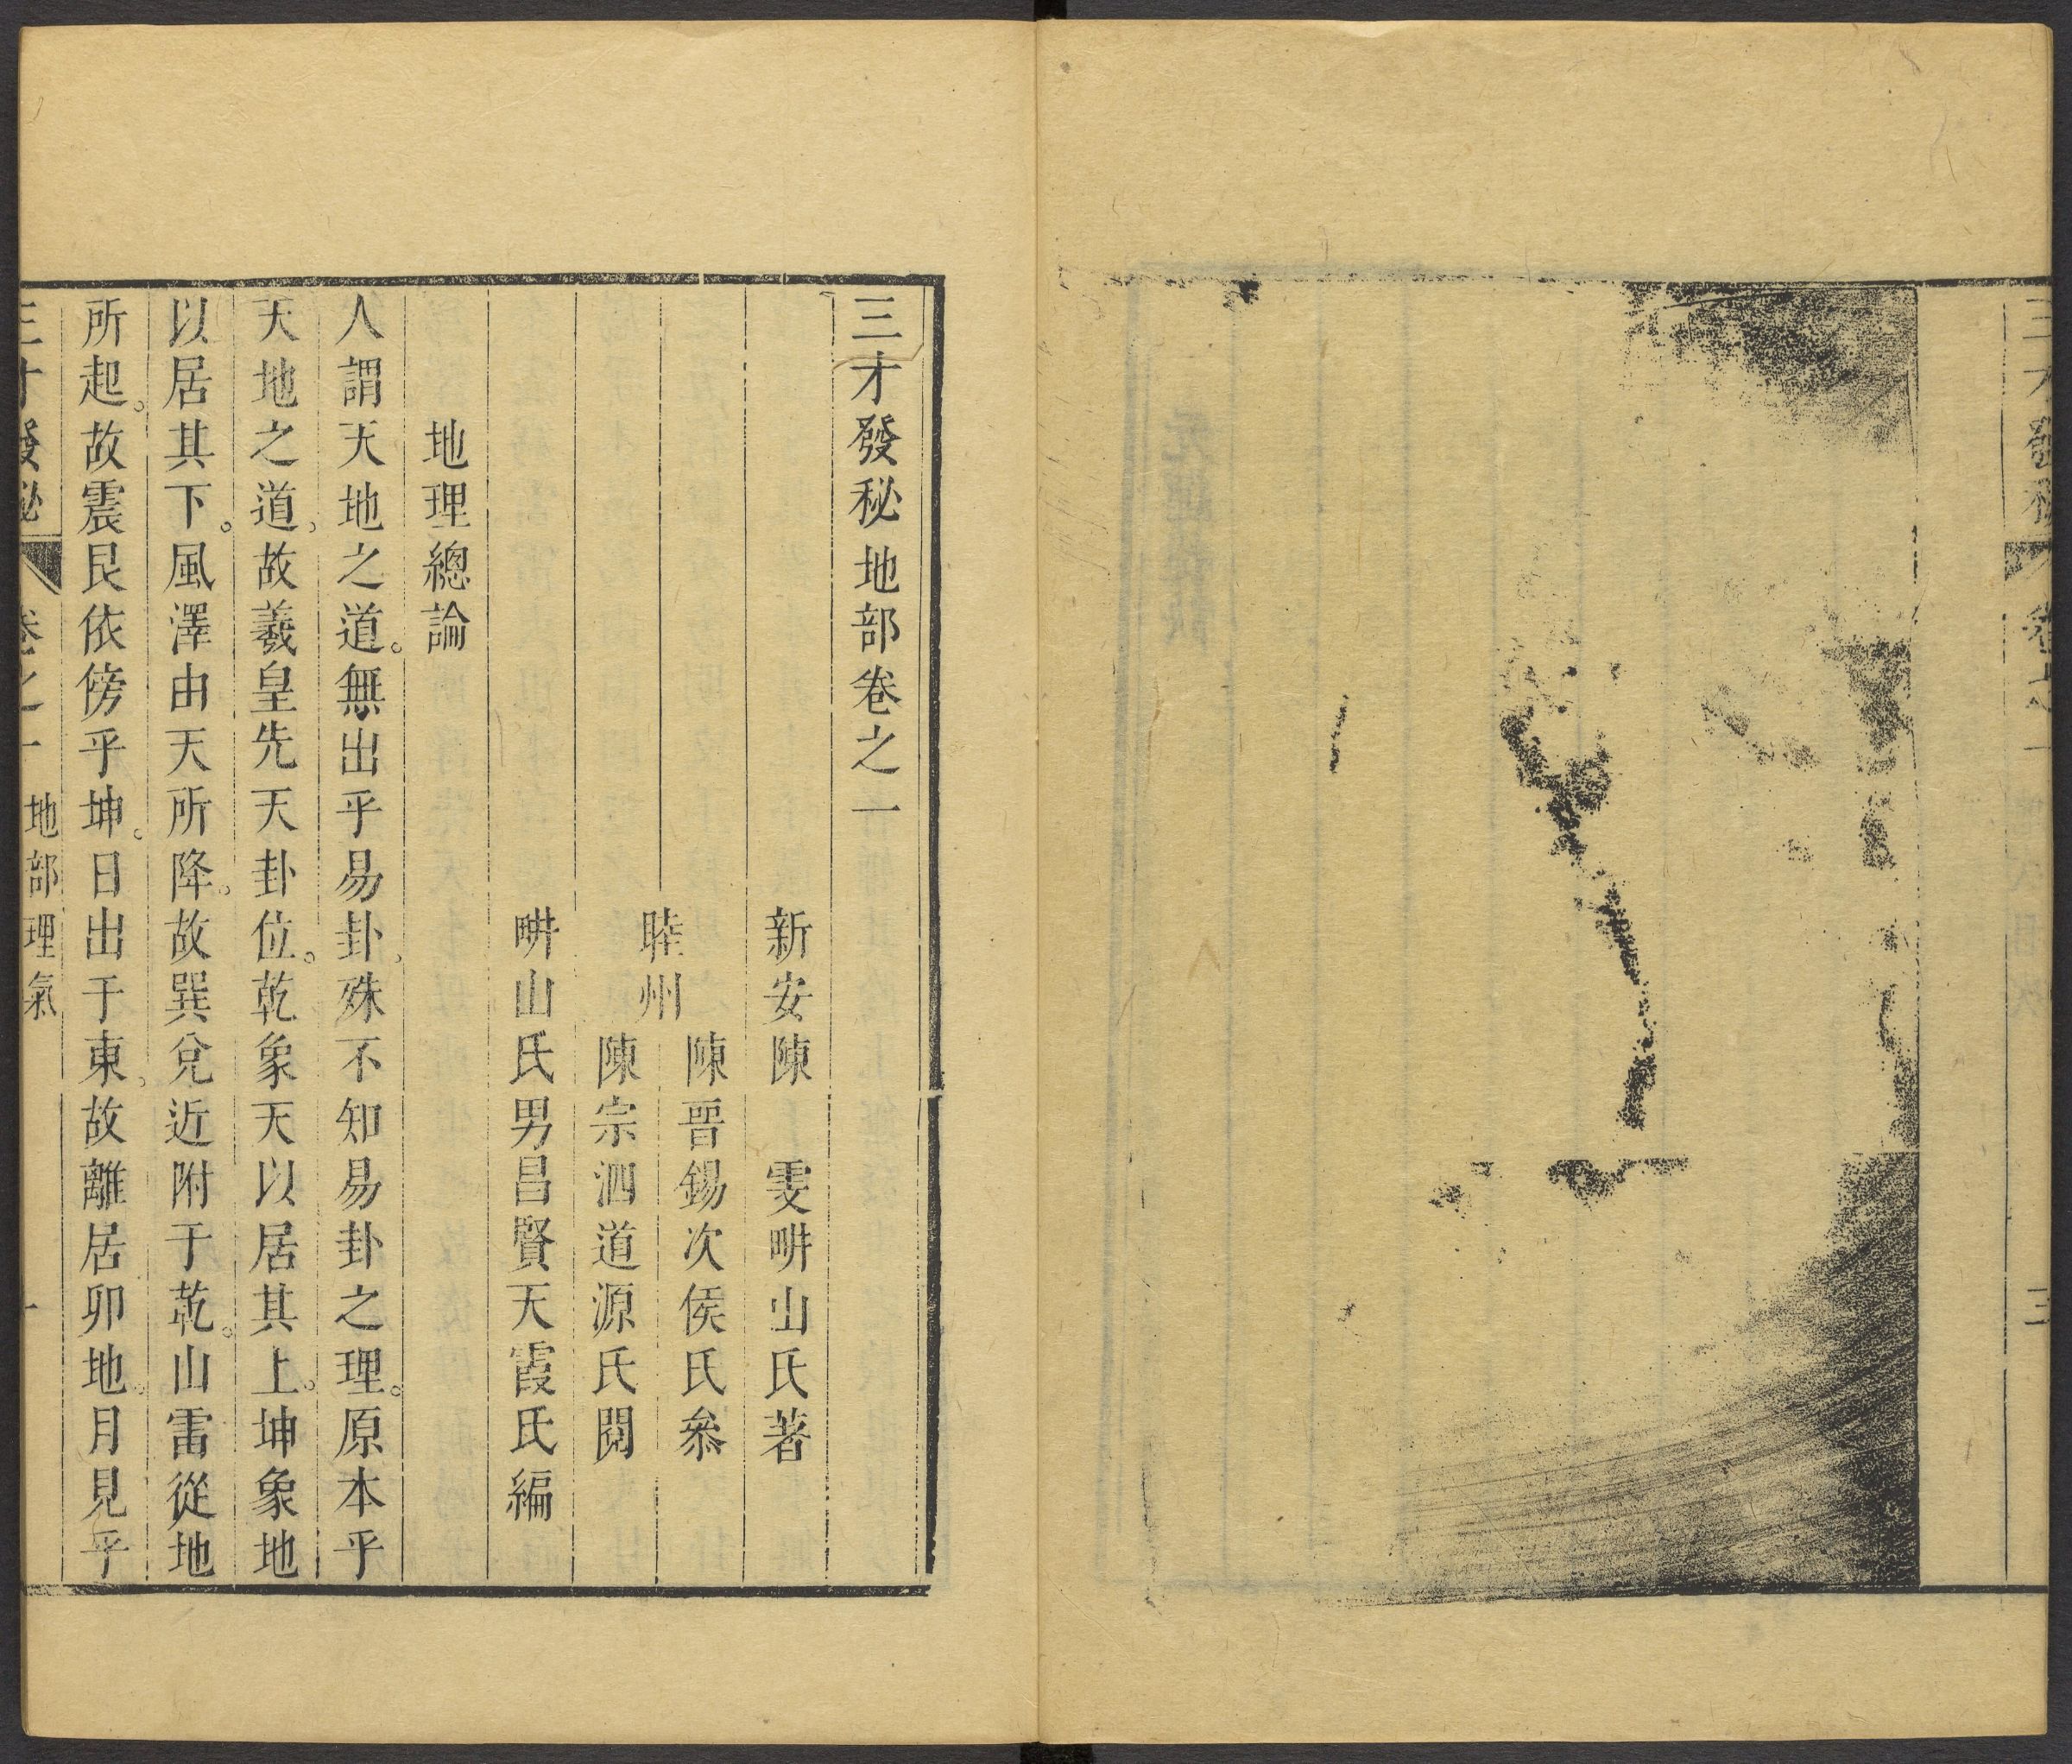 三才發秘
卷之一
三
三才發秘地部卷之一
新安陳　雯畊山氏著
睦州
陳晉錫次侯氏叅
陳宗泗道源氏閱
畊山氏男昌賢天霞氏編
地理總論
人謂天地之道。無出乎易卦、殊不知易卦之理。原本乎
天地之道、故羲皇先天卦位。乾象天以居其上。坤象地
以居其下。風澤由天所降。故巽兌近附于乾。山雷從地
所起。故震艮依傍乎坤。日出于東。故離居卯地。月見乎
三才發秘
卷之一
地部理氣
一